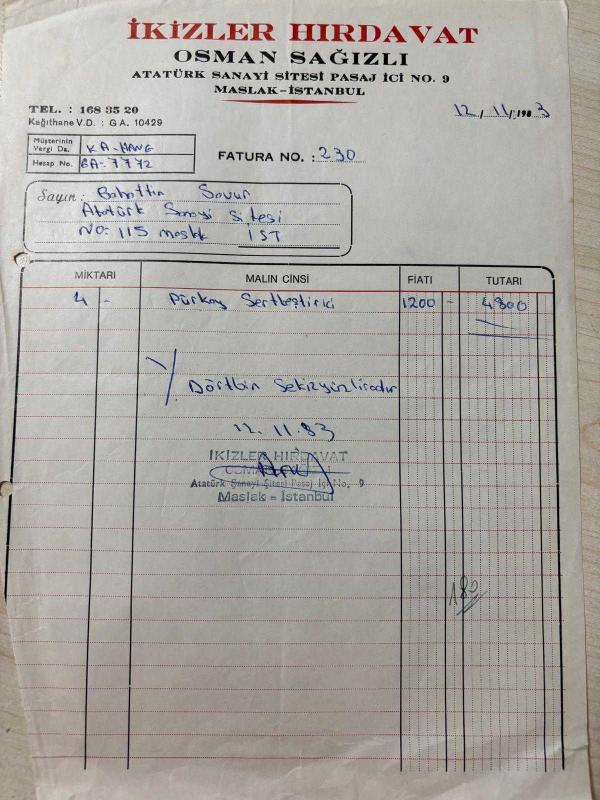 İKİZLER HIRDAVAT
OSMAN SAĞIZLI
ATATÜRK SANAYİ SİTESİ PASAJ İCİ NO. 9
MASLAK-İSTANBUL
TEL. : 168 35 20
Kağıthane V.D. : G A. 10429
12/11/1983
Müşterinin Vergi Da. KA-HANE
Hesap No. GA-7772
FATURA NO. : 230
Sayın : Bahattin Savur
Atatürk Sanayi Sitesi
NO: 115 maslak İST
MİKTARI MALIN CİNSİ FİATI TUTARI
4 - Pürkay Sertleştirici 1200 - 4800
Dörtbin Sekizyüzliradır
12.11.83
İKİZLER HIRDAVAT
OSMAN
Atatürk Sanayi Sitesi Pasaj İçi No. 9
Maslak - İstanbul
180